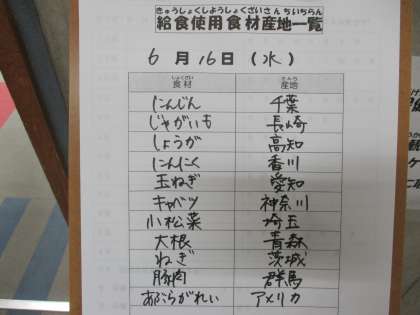 きゅうしょくしようしょくざいさんちいちらん
給食使用食材産地一覧
6月16日(水)
しょくざい さんち
食材 産地
にんじん 千葉
じゃがいも 長崎
しょうが 高知
にんにく 香川
玉ねぎ 愛知
キャベツ 神奈川
小松菜 埼玉
大根 青森
ねぎ 茨城
豚肉 群馬
あぶらがれい アメリカ